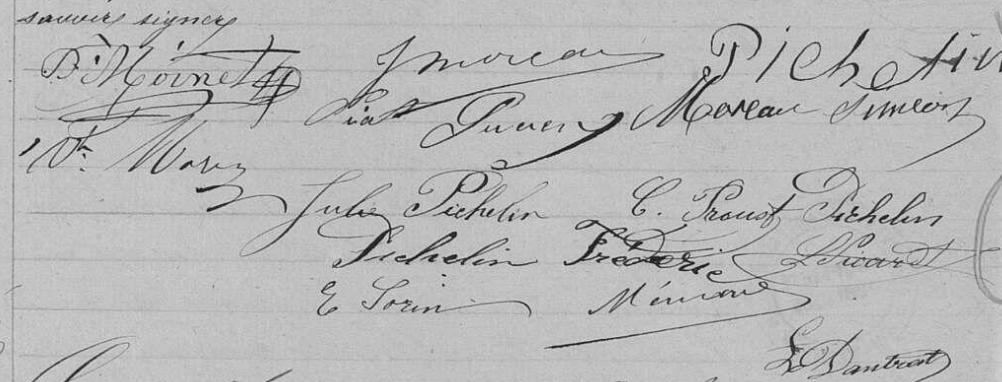 savoir signer
Bt Moinet J moreau Pichelin
Piat Moreau Simeon
Vr. Morin
Julie Pichelin C. Proust Pichelin
Pichelin Fréderic L Picard
E Sorin Mémoux
L Dantrat